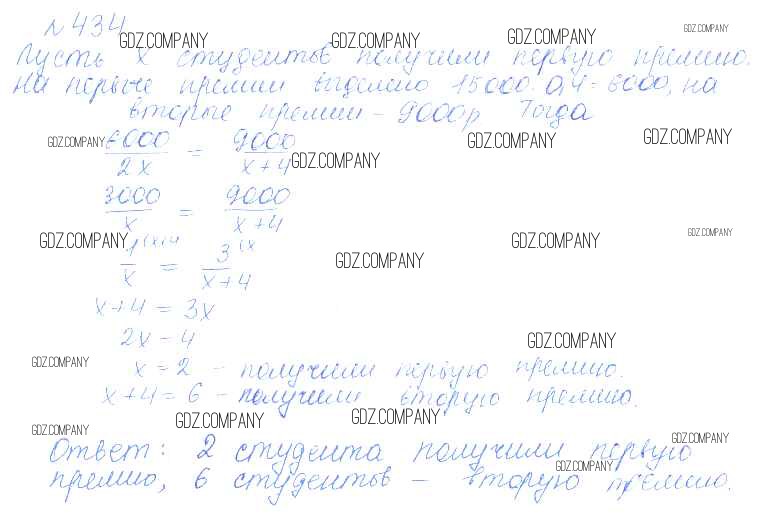 № 434
GDZ.COMPANY GDZ.COMPANY GDZ.COMPANY GDZ.COMPANY
Пусть х студентов получили первую премию.
На первые премии выделено 15000·0,4=6000, на
вторые премии – 9000р Тогда
6000/2х = 9000/х+4
GDZ.COMPANY GDZ.COMPANY GDZ.COMPANY GDZ.COMPANY
3000/х = 9000/х+4
GDZ.COMPANY GDZ.COMPANY GDZ.COMPANY GDZ.COMPANY
1/х = 3/х+4
х+4 = 3х
2х – 4
GDZ.COMPANY
х = 2 – получили первую премию.
GDZ.COMPANY
х+4 = 6 – получили вторую премию.
GDZ.COMPANY GDZ.COMPANY GDZ.COMPANY GDZ.COMPANY
Ответ: 2 студента получили первую
GDZ.COMPANY
премию, 6 студентов – вторую премию.